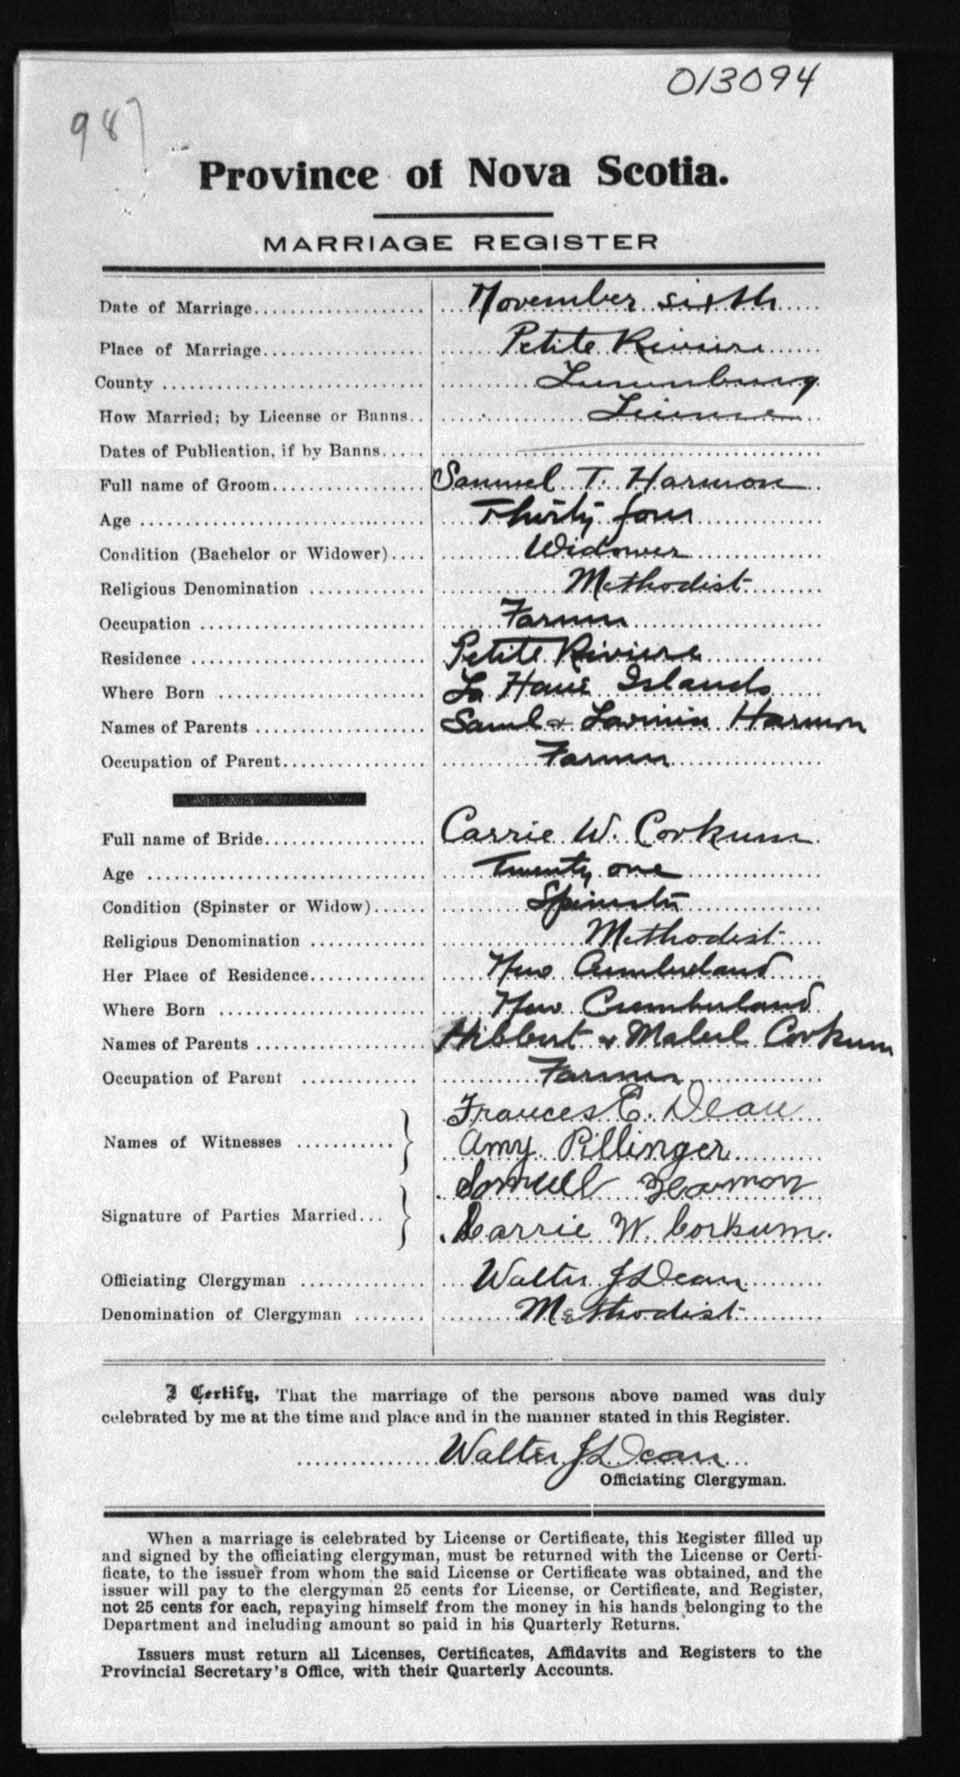 013094
987
Province of Nova Scotia.
MARRIAGE REGISTER
Date of Marriage November sixth
Place of Marriage Petite Riviere
County Lunenburg
How Married; by License or Banns License
Dates of Publication, if by Banns
Full name of Groom Samuel T. Harmon
Age Thirty four
Condition (Bachelor or Widower) Widower
Religious Denomination Methodist
Occupation Farmer
Residence Petite Riviere
Where Born La Have Islands
Names of Parents Saml & Lavinia Harmon
Occupation of Parent Farmer
Full name of Bride Carrie W. Corkum
Age Twenty one
Condition (Spinster or Widow) Spinster
Religious Denomination Methodist
Her Place of Residence New Cumberland
Where Born New Cumberland
Names of Parents Hibbert & Mabel Corkum
Occupation of Parent Farmer
Names of Witnesses Frances E. Dean
Amy Pillinger
Signature of Parties Married Samuel Harmon
Carrie W. Corkum.
Officiating Clergyman Walter J Dean
Denomination of Clergyman Methodist
I Certify, That the marriage of the persons above named was duly
celebrated by me at the time and place and in the manner stated in this Register.
Walter J Dean
Officiating Clergyman.
When a marriage is celebrated by License or Certificate, this Register filled up
and signed by the officiating clergyman, must be returned with the License or Certi-
ficate, to the issuer from whom the said License or Certificate was obtained, and the
issuer will pay to the clergyman 25 cents for License, or Certificate, and Register,
not 25 cents for each, repaying himself from the money in his hands belonging to the
Department and including amount so paid in his Quarterly Returns.
Issuers must return all Licenses, Certificates, Affidavits and Registers to the
Provincial Secretary's Office, with their Quarterly Accounts.